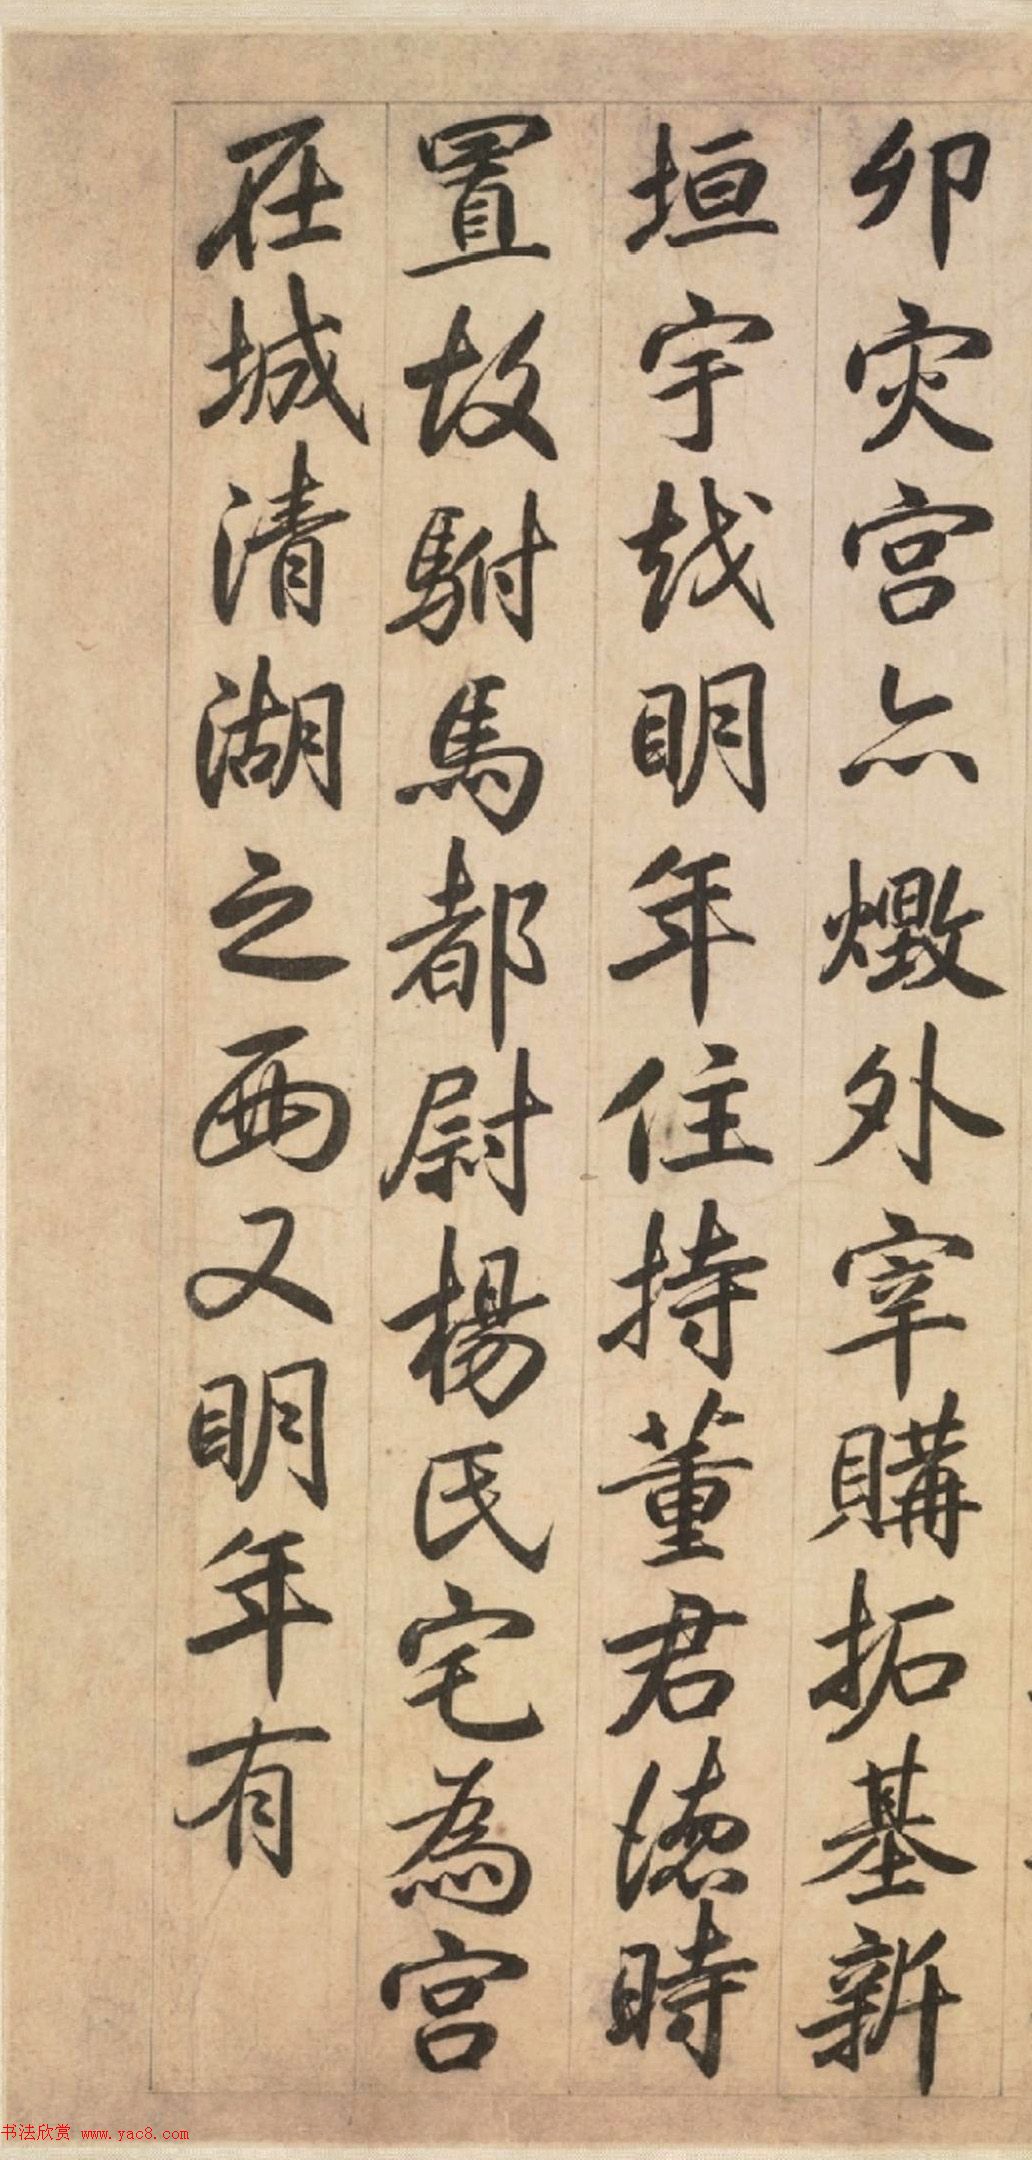 卯灾宫亦燬外宰購拓基新
垣宇越明年住持董君德時
置故駙馬都尉楊氏宅為宫
在城清湖之西又明年有
书法欣赏 www.yac8.com